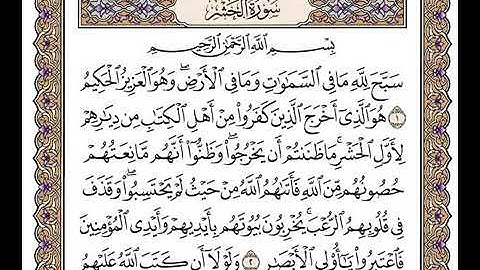 سُورَةُ الْحَشْرِ
بِسْمِ اللَّهِ الرَّحْمَٰنِ الرَّحِيمِ
سَبَّحَ لِلَّهِ مَا فِي السَّمَاوَاتِ وَمَا فِي الْأَرْضِ ۖ وَهُوَ الْعَزِيزُ الْحَكِيمُ
١ هُوَ الَّذِي أَخْرَجَ الَّذِينَ كَفَرُوا مِنْ أَهْلِ الْكِتَابِ مِن دِيَارِهِمْ
لِأَوَّلِ الْحَشْرِ ۚ مَا ظَنَنتُمْ أَن يَخْرُجُوا ۖ وَظَنُّوا أَنَّهُم مَّانِعَتُهُمْ
حُصُونُهُم مِّنَ اللَّهِ فَأَتَاهُمُ اللَّهُ مِنْ حَيْثُ لَمْ يَحْتَسِبُوا ۖ وَقَذَفَ
فِي قُلُوبِهِمُ الرُّعْبَ ۚ يُخْرِبُونَ بُيُوتَهُم بِأَيْدِيهِمْ وَأَيْدِي الْمُؤْمِنِينَ
فَاعْتَبِرُوا يَا أُولِي الْأَبْصَارِ ٢ وَلَوْلَا أَن كَتَبَ اللَّهُ عَلَيْهِمُ